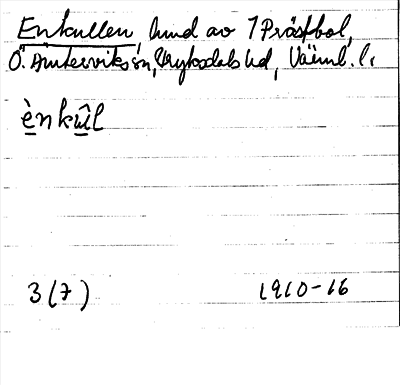 Enkullen, lund av 1 Prästbol,
Ö. Ämterviks sn, Fryksdals hd, Värml. l.
ènkûl
3(7) 1910-16